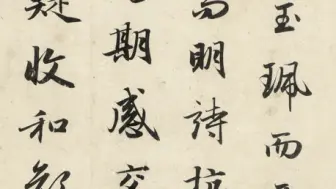 玉珮而
明詩抗
期感交
疑收和顏